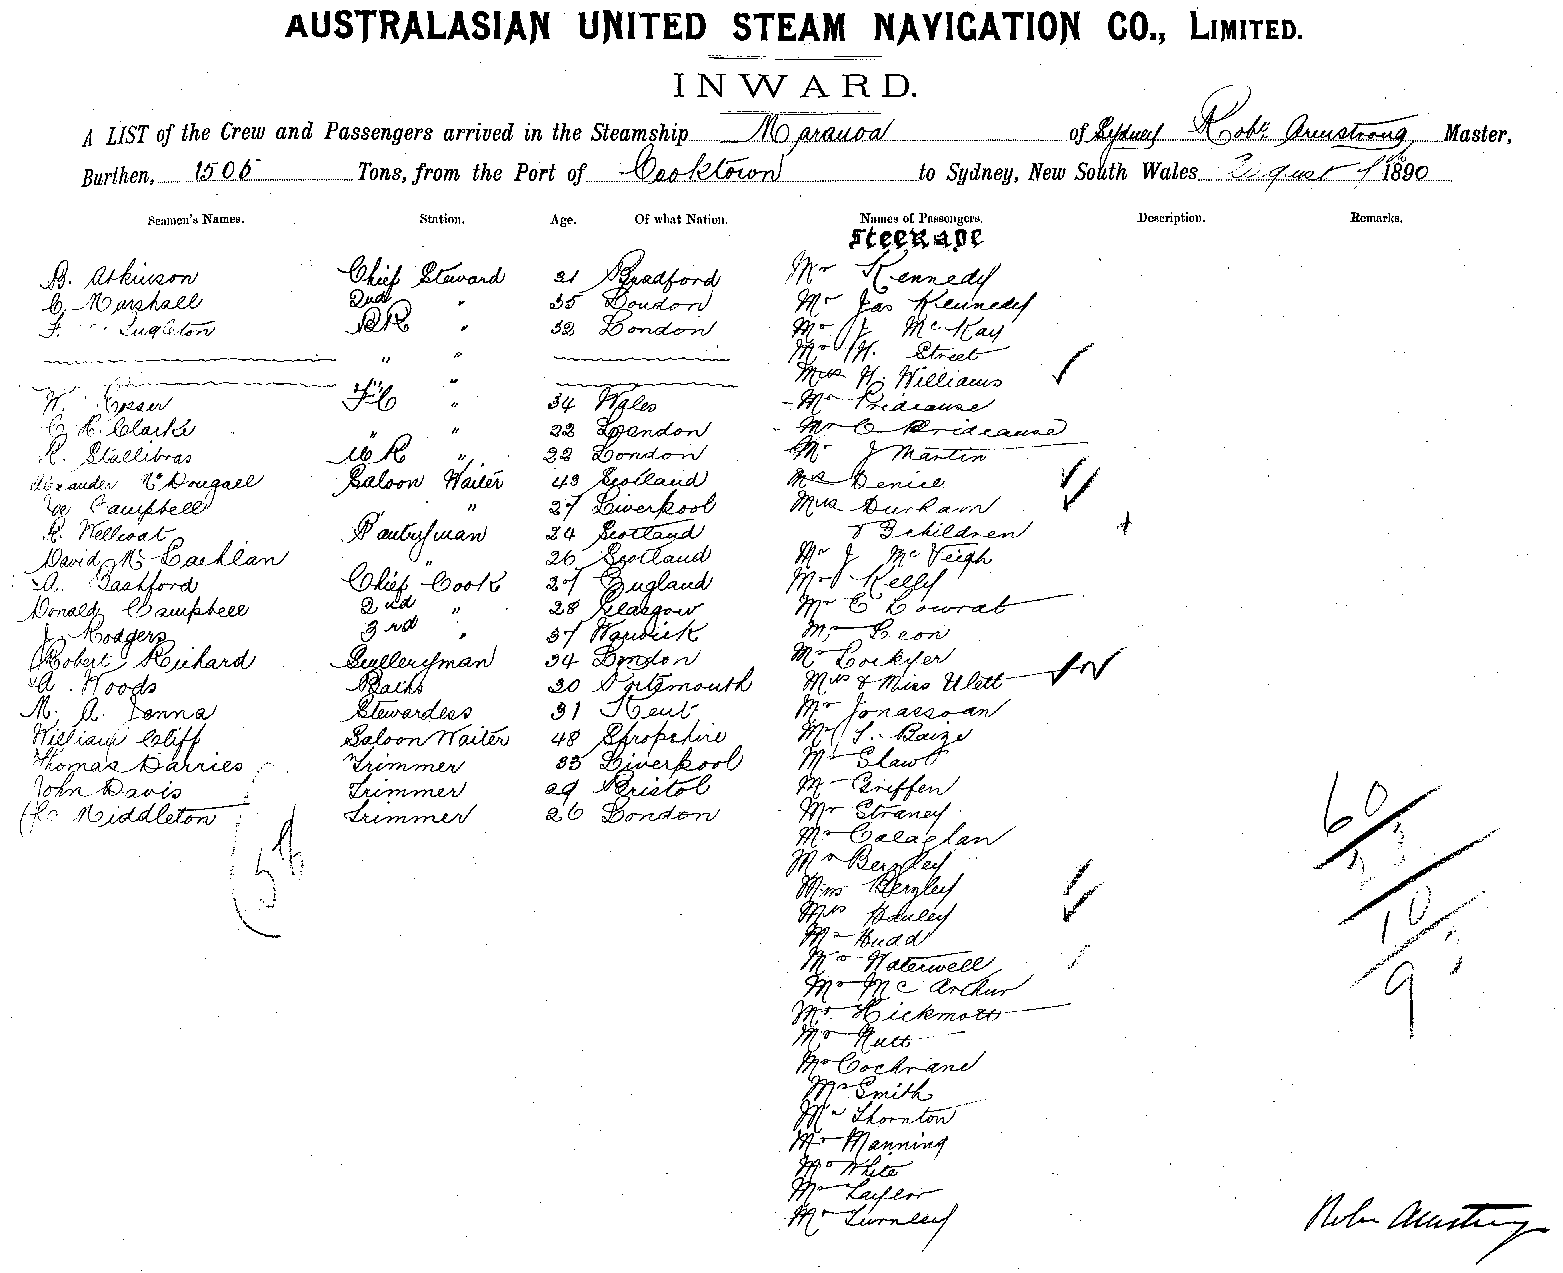 AUSTRALASIAN UNITED STEAM NAVIGATION CO., LIMITED.
INWARD.
A LIST of the Crew and Passengers arrived in the Steamship Maranoa of Sydney Robt Armstrong, Master,
Burthen, 1505 Tons, from the Port of Cooktown to Sydney, New South Wales August 1890
Seamen's Names. Station. Age. Of what Nation. Names of Passengers. Description. Remarks.
Steerage
B. Atkinson Chief Steward 31 Bradford Mr Kennedy
C. Marshall 2nd " 35 London Mr Jas Kennedy
F. Singleton BR " 32 London Mr J McKay
" " Mr W. Street
" Mrs W. Williams
W. FC " 34 Wales Mr Prideause
C R. Clarke " " 22 London Mr C Prideause
R. Stallibras " 22 London Mr J Martin
Alexander McDougall Saloon Waiter 43 Scotland Mrs Denice
Campbell " 27 Liverpool Mrs Durham
R. Wellcoat Pantryman 24 Scotland & 3 children
David McLachlan " 26 Scotland Mr J McVeigh
A. Bashford Chief Cook 27 England Mr Kelly
Donald Campbell 2nd " 28 Glasgow Mr E Lowrat
J. Rodgers 3rd " 37 Warwick Mr Leon
Robert Richard Sculleryman 34 London Mr Lockyer
A. Woods Baths 30 Portsmouth Mrs & Miss Ulett
M. A. Janna Stewardess 31 Kent Mr Jonassoan
William Cliff Saloon Waiter 48 Shropshire Mr T. Baize
Thomas Darries Trimmer 33 Liverpool Mr Shaw
John Davis Trimmer 29 Bristol Mr Griffen
Middleton Trimmer 26 London Mr Straney
Mr Calaghan
Mr Bergley
Mrs Bergley
Mrs Hanley
Mr Hudd
Mr Waterwell
Mr McArthur
Mr Hickmott
Mr Nutt
Mr Cochrane
Mr Smith
Mr Thornton
Mr Manning
Mr White
Mr Taylor
Mr Turnley
60
23
10
9
Robr Armstrong